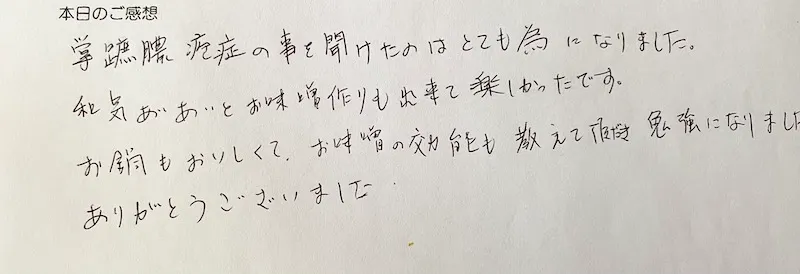 本日のご感想
掌蹠膿疱症の事を聞けたのはとても為になりました。
和気あいあいとお味噌作りも出来て楽しかったです。
お鍋もおいしくて、お味噌の効能も教えて頂き勉強になりました
ありがとうございました